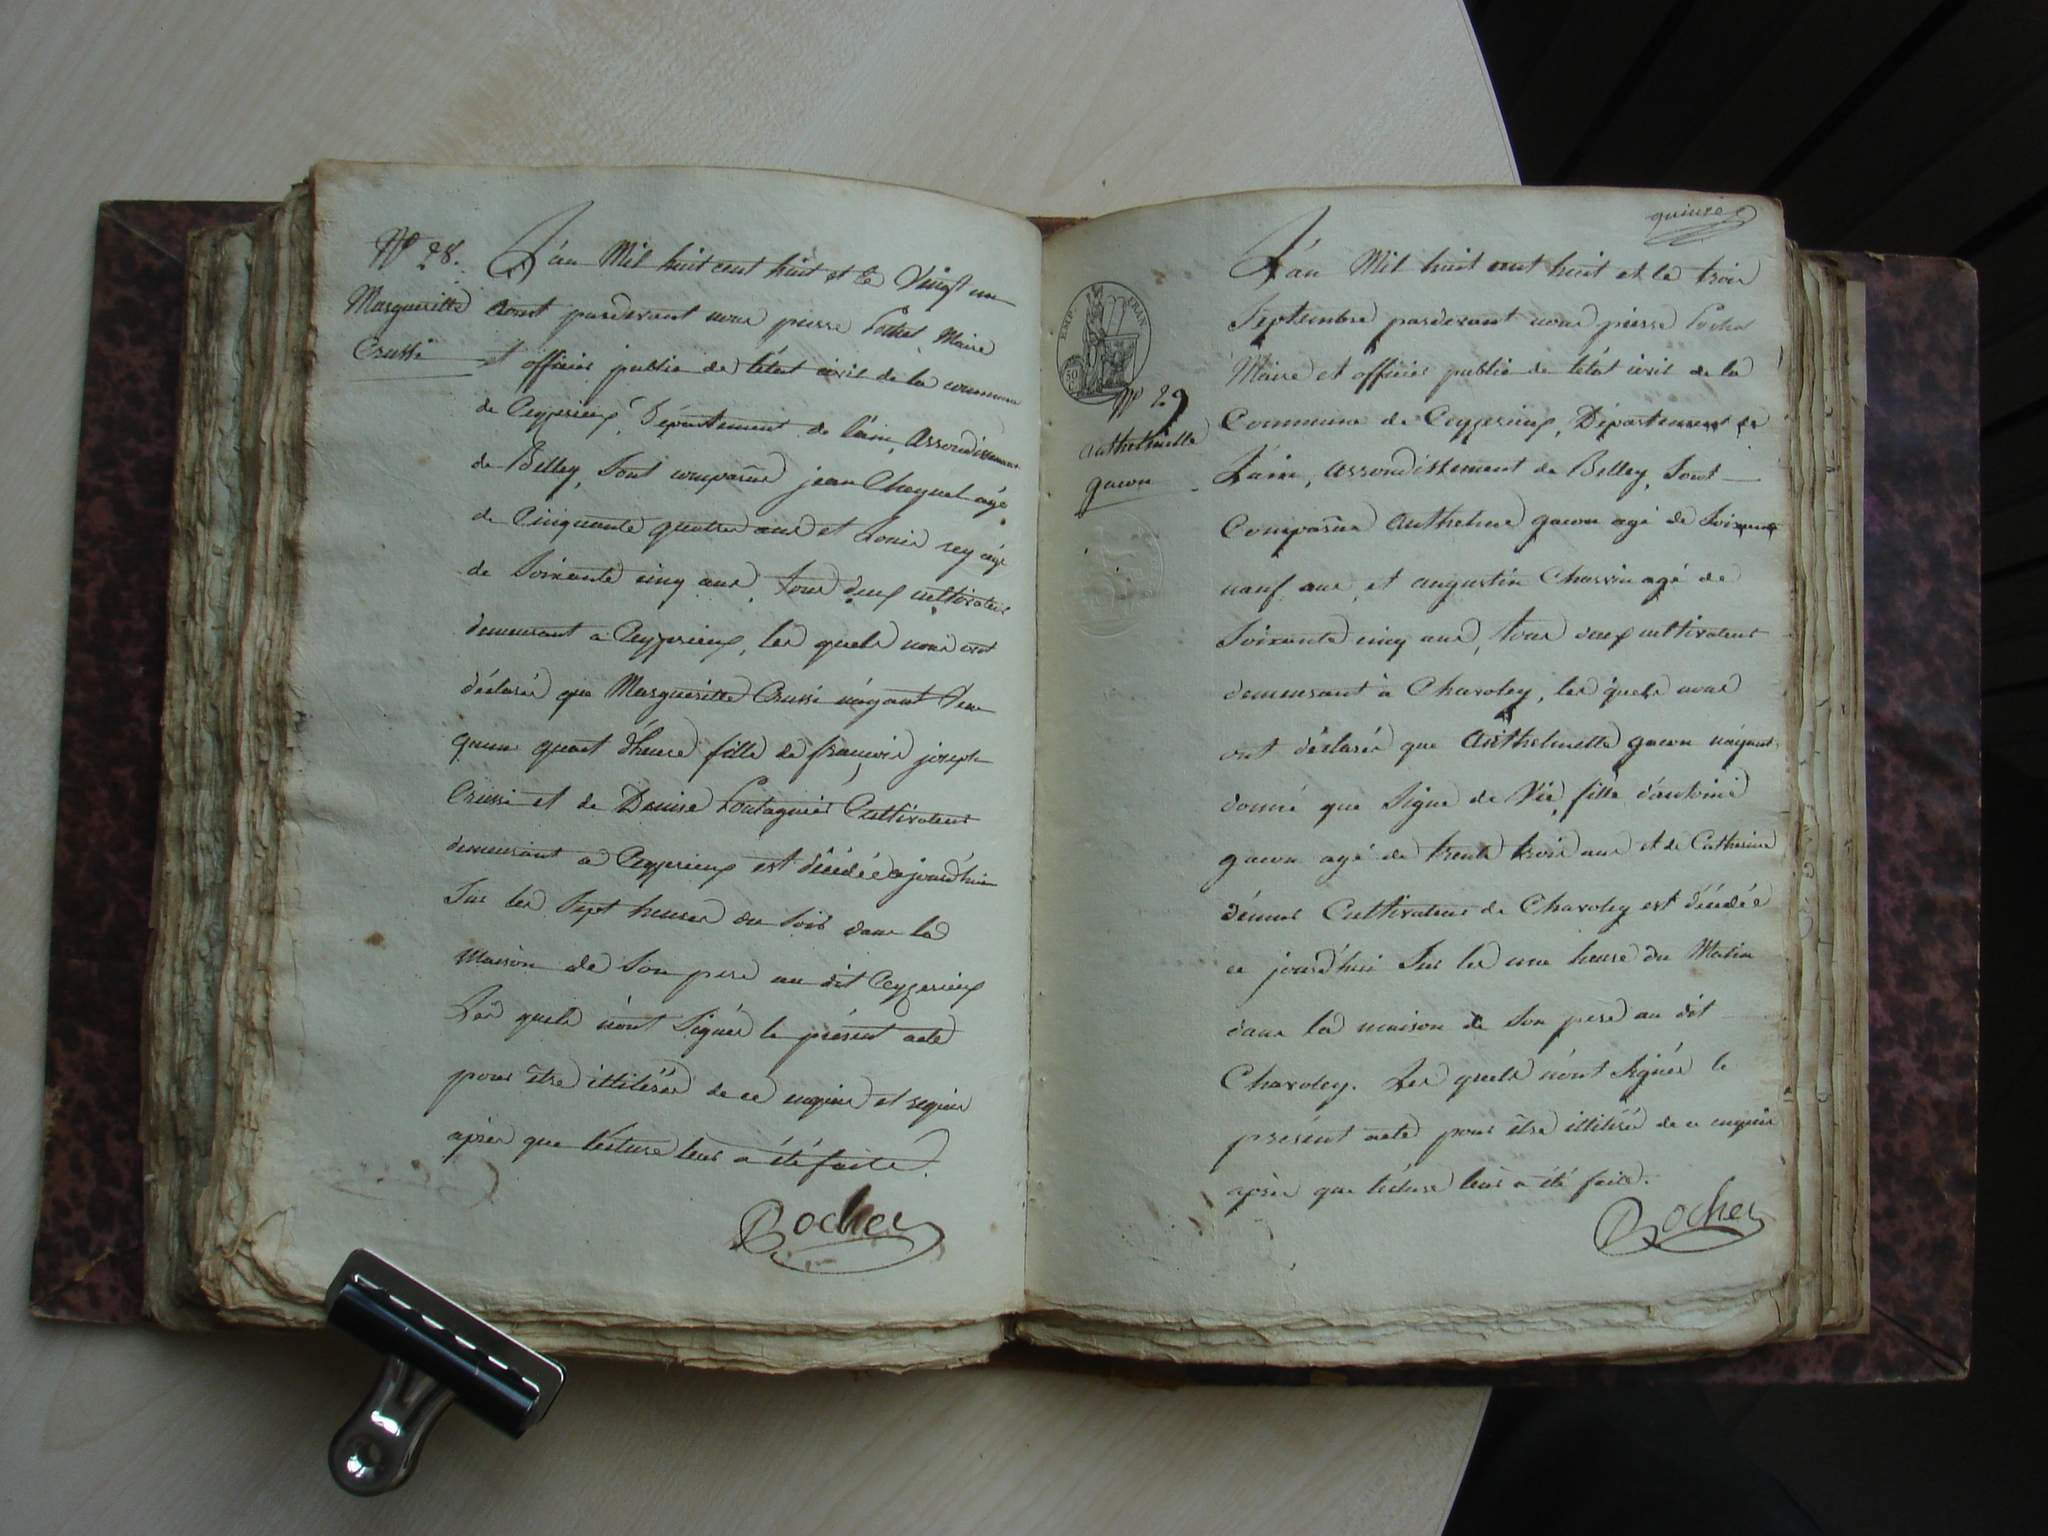 N° 28.
Margueritte
Crussi
L'an Mil huit cent huit et le Vingt un
aout pardevant nous pierre Rochet Maire
et officier public de l'état civil de la commune
de Ceyzerieux, Département de l'ain, Arrondissement
de Belley, Sont comparus jean Cheynel agé
de Cinquante quatre ans et Louis rey agé
de Soixante cinq ans, tous deux cultivateurs
demeurant a Ceyzerieux, les quels nous ont
déclarés que Margueritte Crussi n'ayant vécu
qu'un quart d'heure fille de françois joseph
Crussi et de Denise Cultivateurs
demeurant a Ceyzerieux est décédée ajourd'hui
Sur les Sept heures du Soir dans la
Maison de Son pere au dit Ceyzerieux
Les quels n'ont Signés le présent acte
pour être illitérés de ce enquis et requis
après que lecture leur a été faite.
Rocher
quinze
EMP. FRAN.
N° 29
anthelmette
gacon
L'an Mil huit cent huit et le trois
Septembre pardevant nous pierre Rochet
Maire et officier public de l'état civil de la
Commune de Ceyzerieux, Département de
L'ain, arrondissement de Belley, Sont
Comparus Anthelme gacon agé de Soixante
neuf ans, et augustin Chassin agé de
Soixante cinq ans, tous deux cultivateurs
demeurant à Chavoley, les quels nous
ont déclarés que Anthelmette gacon n'ayant
donné que Signe de Vie, fille d'antoine
gacon agé de trente trois ans et de Catherine
Cultivateurs de Chavoley est décédée
ce jourd'hui Sur les une heure du Matin
dans la maison de Son pere au dit
Chavoley. Les quels n'ont Signés le
présent acte pour être illitérés de ce enquis
après que lecture leur a été faite.
Rocher